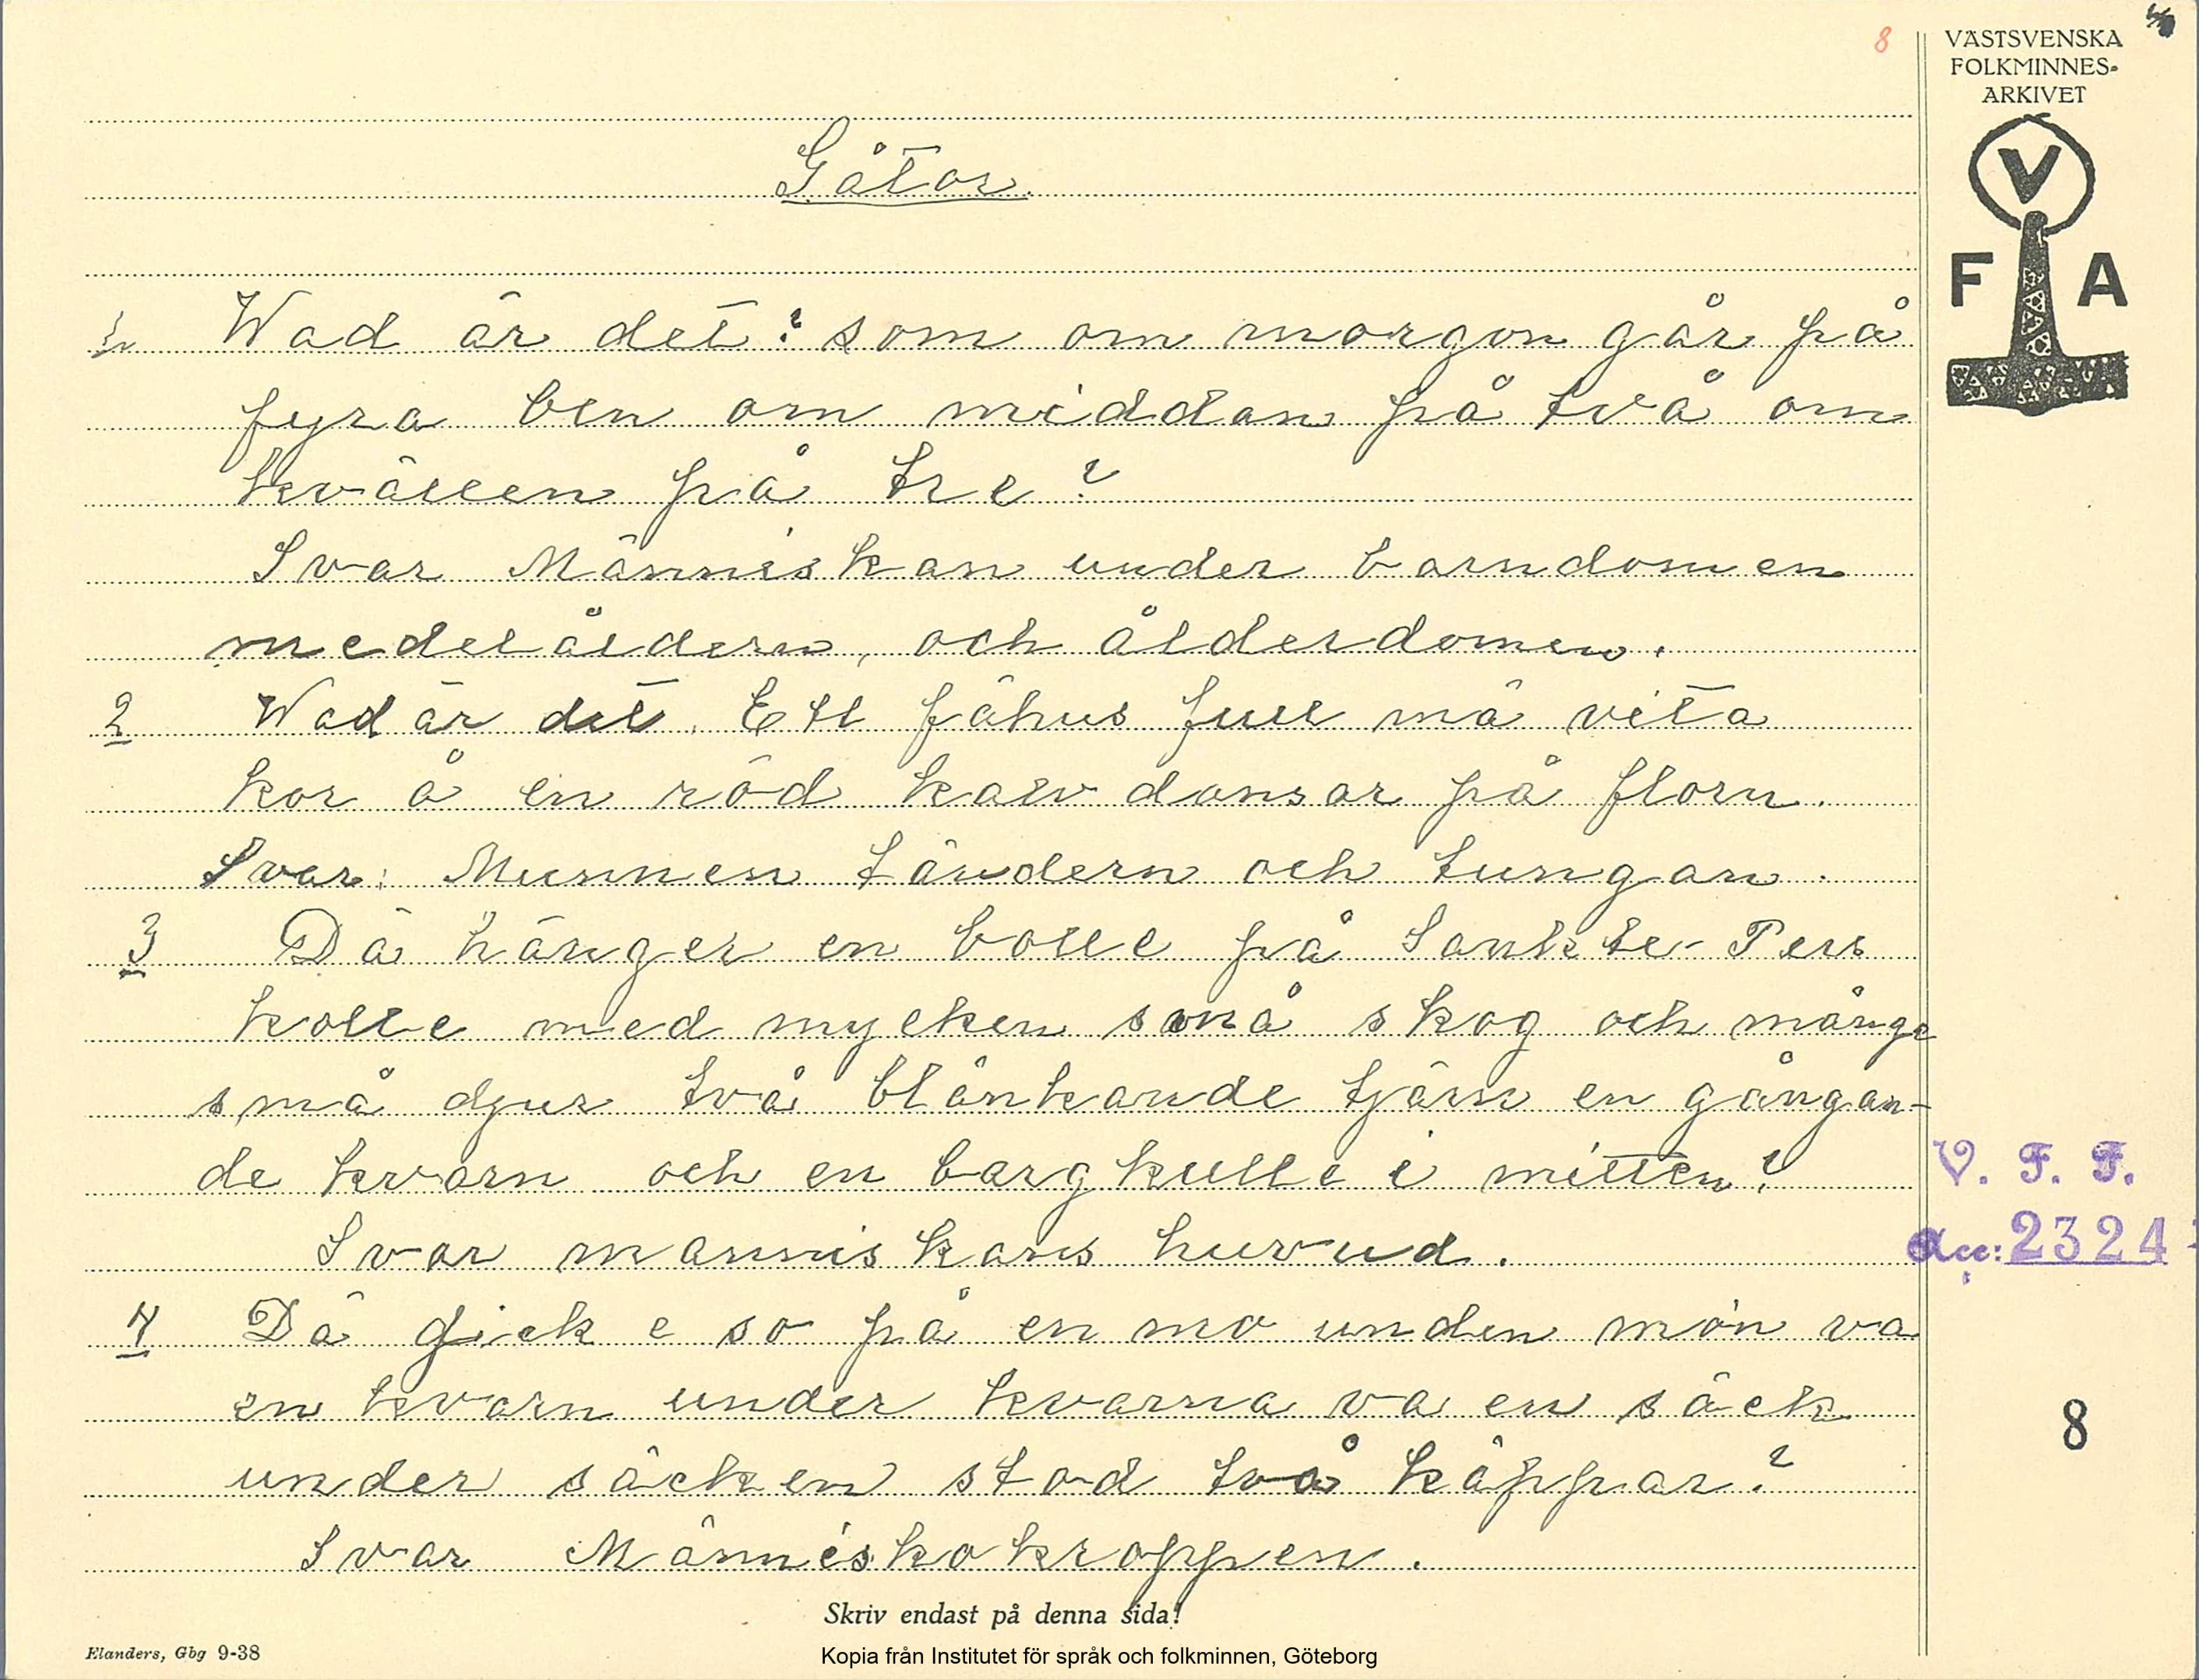 8
VÄSTSVENSKA
FOLKMINNES-
ARKIVET
V
F A
Gåtor.
1. Wad är det? som om morgon går på
fyra ben om middan på två om
kvällen på tre?
Svar Människan under barndomen
medelåldern, och ålderdomen.
2 Wad är det. Ett fähus full mä vita
kor å en röd kalv dansar på florn.
Svar: Munnen tändern och tungan.
3 Dä hänger en bolle på Sankte-Pers
kolle med mycken små skog och många
små djur två blänkande tjärn en gångan-
de kvarn och en bargkulle i mitten?
Svar manniskans huvud.
4 Dä gick e so på en mo unden mon va
en kvarn under kvarna va en säck
under säcken stod två käppar?
Svar Människokroppen.
V. F. F.
Acc: 2324
8
Skriv endast på denna sida!
Elanders, Gbg 9-38
Kopia från Institutet för språk och folkminnen, Göteborg